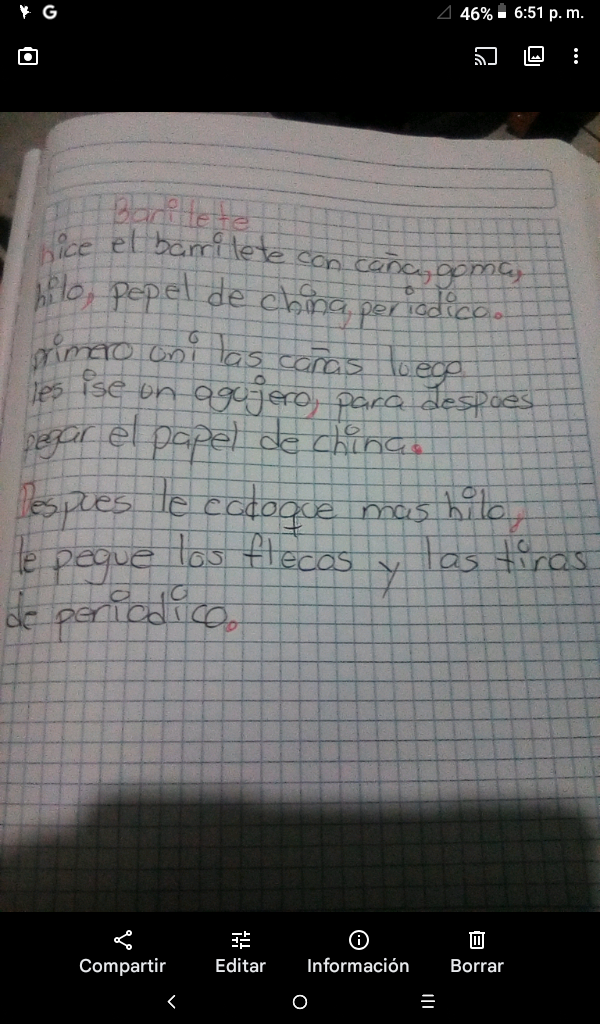 G 46% 6:51 p. m.
Barrilete
hice el barrilete con caña, goma,
hilo, pepel de china, periodico.
primero uni las cañas luego
les ise un agujero, para despues
pegar el papel de china.
Despues le coloque mas hilo,
le pegue los flecos y las tiras
de periodico.
Compartir Editar Información Borrar